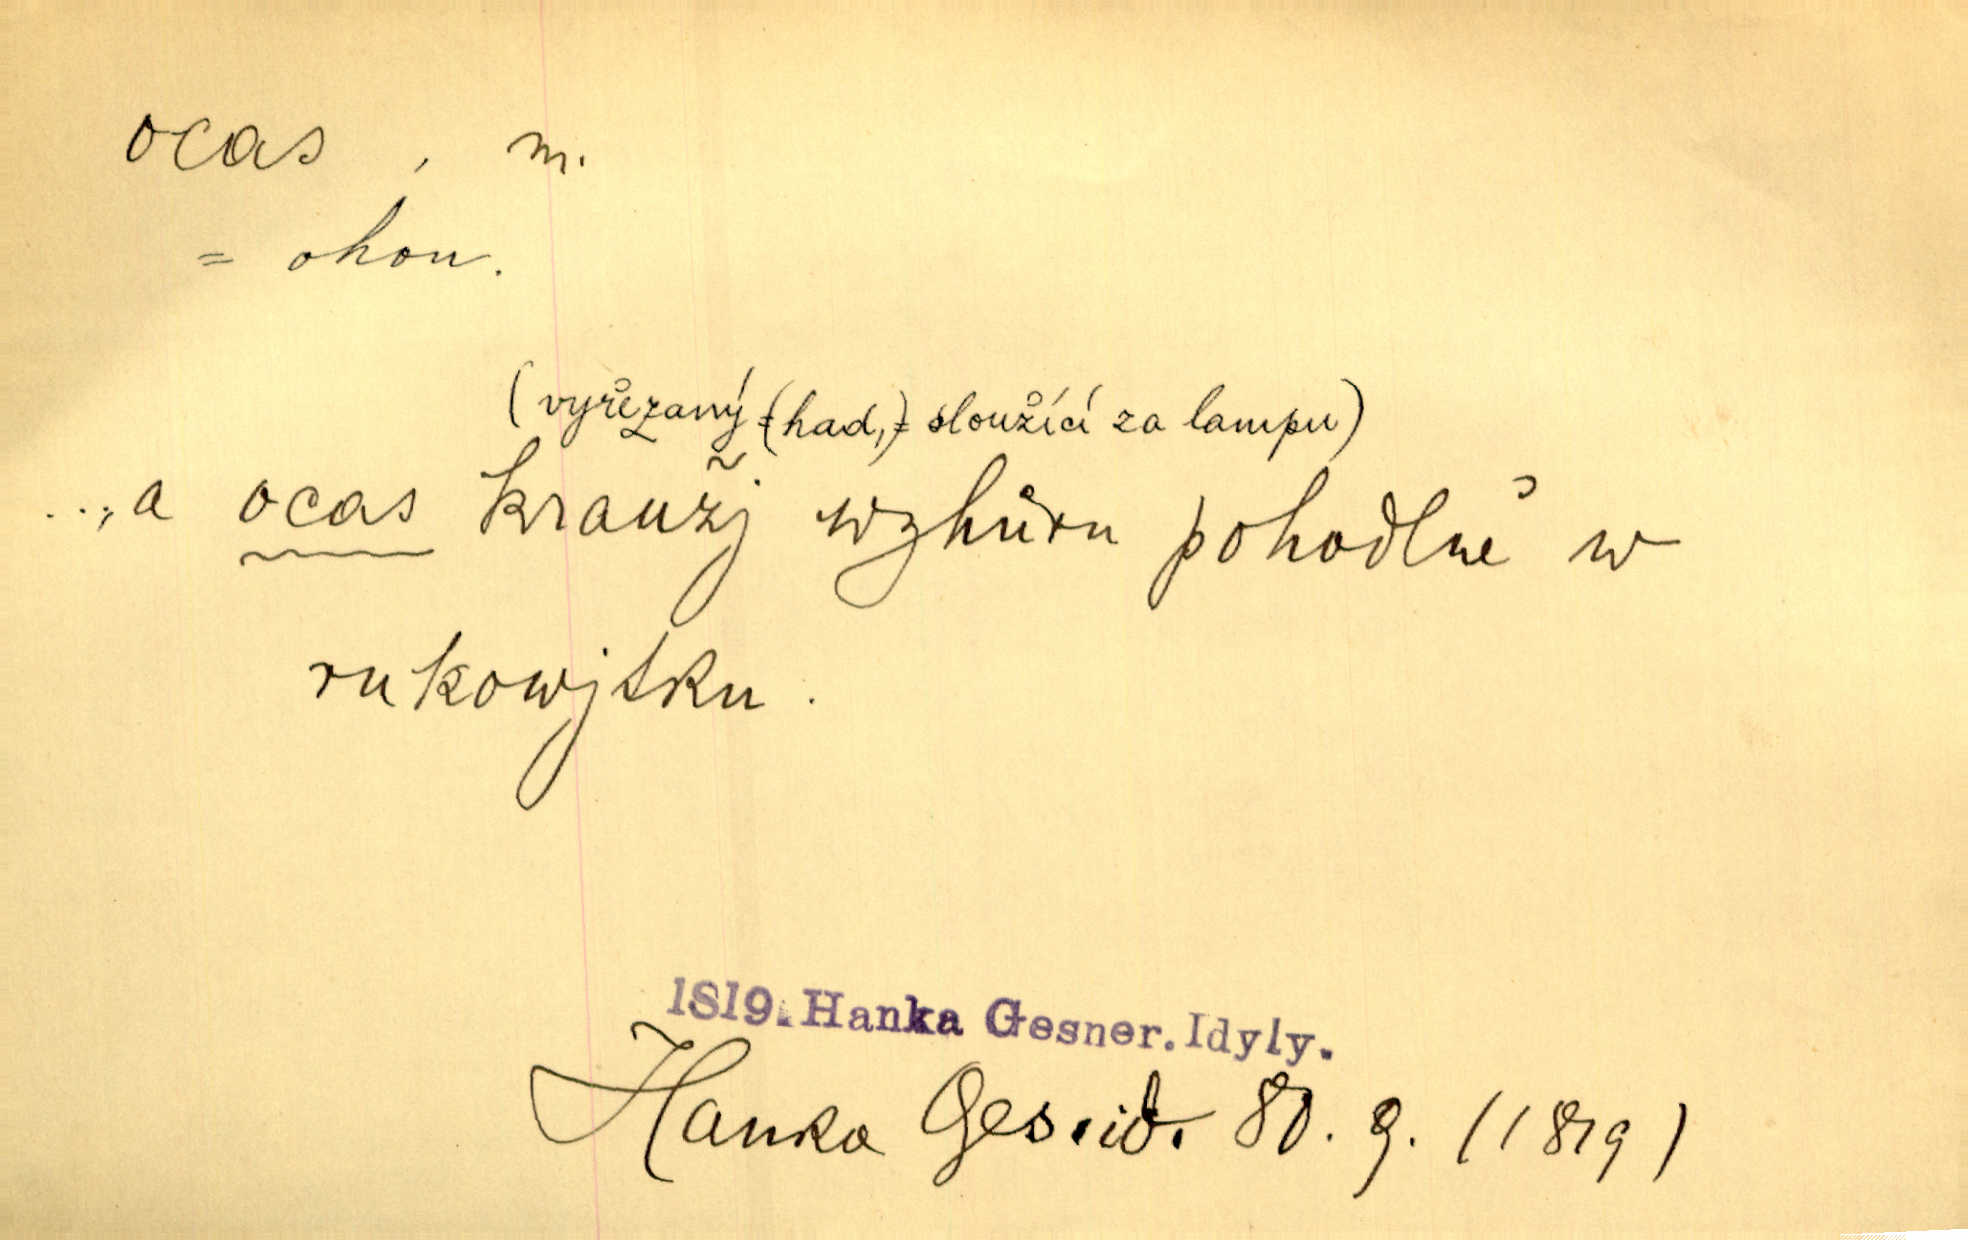 ocas , m.
= ohon.
(vyřezaný (had,) sloužící za lampu)
..., a ocas kraužj wzhůru pohodlně w
rukowjtku .
1819. Hanka Gesner. Idyly.
Hanka Ges. id. 80. 9. (1819)